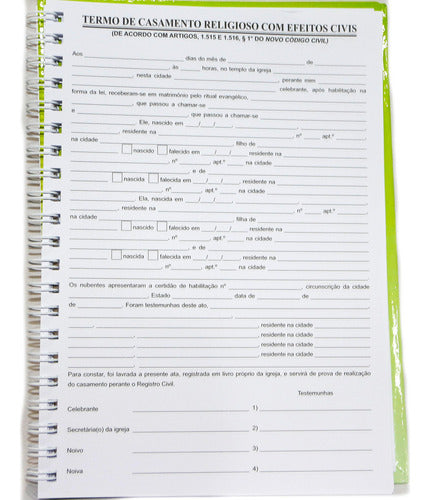 TERMO DE CASAMENTO RELIGIOSO COM EFEITOS CIVIS
(DE ACORDO COM ARTIGOS, 1.515 E 1.516, § 1º DO NOVO CÓDIGO CIVIL)
Aos ____ dias do mês de ____ de ____
____, às ____ horas, no templo da igreja ____
____, nesta cidade ____, perante mim ____
____ celebrante, após habilitação na
forma da lei, receberam-se em matrimônio pelo ritual evangélico, ____
____, que passou a chamar-se ____
e ____, que passou a chamar-se ____
____. Ele, nascido em ___/___/___, ____
____, residente na ____, nº ____ apt.º ____
na cidade ____ filho de ____
____ nascido falecido em ___/___/___ residente na ____
____, nº ____, apt.º ____ na cidade ____
____, e de ____
____ nascida falecida em ___/___/___, residente na ____
____, nº ____ apt.º ____ na cidade ____
____. Ela, nascida em ___/___/___, ____
____, residente na ____, nº ____ apt.º ____
na cidade ____ filha de ____
____ nascido falecido em ___/___/___ residente na ____
____, nº ____, apt.º ____ na cidade ____
____, e de ____
____ nascida falecida em ___/___/___, residente na ____
____, nº ____ apt.º ____ na cidade ____
Os nubentes apresentaram a certidão de habilitação nº ____, circunscrição da cidade
____, Estado ____ data de ____ de ____
de ____. Foram testemunhas deste ato, ____
____, residente na cidade ____
____, residente na cidade ____
____, residente na cidade ____
____, residente na cidade ____
Para constar, foi lavrada a presente ata, registrada em livro próprio da igreja, e servirá de prova de realização
do casamento perante o Registro Civil.
Testemunhas
Celebrante ____ 1) ____
Secretária(o) da igreja ____ 2) ____
Noivo ____ 3) ____
Noiva ____ 4) ____